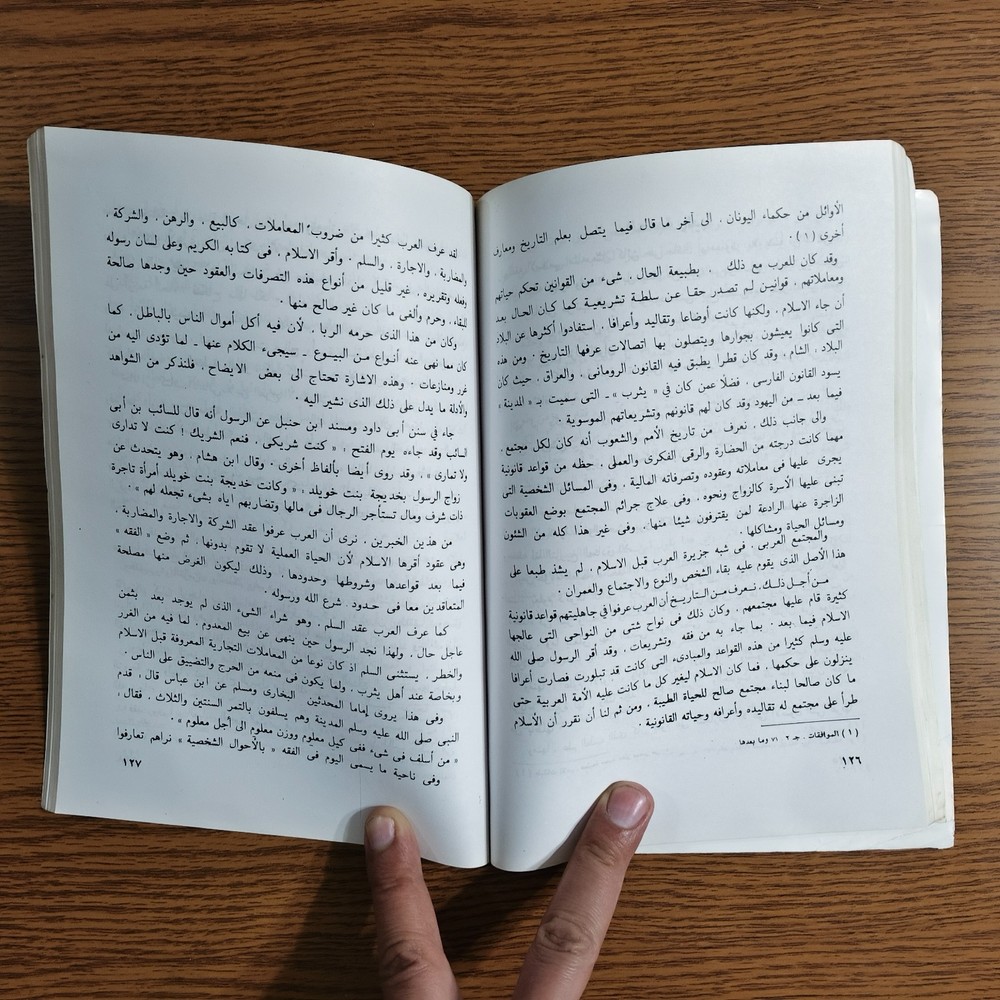 الأوائل من حكماء اليونان ، الى آخر ما قال فيما يتصل بعلم التاريخ ومعارف
أخرى (١) .
وقد كان للعرب مع ذلك ، بطبيعة الحال ، شىء من القوانين تحكم حياتهم
ومعاملاتهم . قوانين لم تصدر حقا عن سلطة تشريعية كما كان الحال بعد
أن جاء الاسلام ، ولكنها كانت أوضاعا وتقاليد وأعرافا ، استفادوا أكثرها عن البلاد
التى كانوا يعيشون بجوارها ويتصلون بها اتصالات عرفها التاريخ . ومن هذه
البلاد ، الشام ، وقد كان قطرا يطبق فيه القانون الرومانى . والعراق ، حيث كان
يسود القانون الفارسى . فضلا عمن كان في « يثرب » ـ التى سميت بـ « المدينة »
فيما بعد ـ من اليهود وقد كان لهم قانونهم وتشريعاتهم الموسوية .
والى جانب ذلك ، نعرف من تاريخ الأمم والشعوب أنه كان لكل مجتمع .
مهما كانت درجته من الحضارة والرقى الفكرى والعملى . حظه من قواعد قانونية
يجرى عليها فى معاملاته وعقوده وتصرفاته المالية . وفى المسائل الشخصية التى
تبنى عليها الأسرة كالزواج ونحوه . وفى علاج جرائم المجتمع بوضع العقوبات
الزاجرة عنها الرادعة لمن يقترفون شيئا منها . وفى غير هذا كله من الشئون
ومسائل الحياة ومشاكلها .
والمجتمع العربى . فى شبه جزيرة العرب قبل الاسلام . لم يشذ طبعا على
هذا الأصل الذى يقوم عليه بقاء الشخص والنوع والاجتماع والعمران .
من أجل ذلك . نعرف من التاريخ أن العرب عرفوا فى جاهليتهم قواعد قانونية
كثيرة قام عليها مجتمعهم . وكان ذلك فى نواح شتى من النواحى التى عالجها
الاسلام فيما بعد . بما جاء به من فقه وتشريعات . وقد أقر الرسول صلى الله
عليه وسلم كثيرا من هذه القواعد والمبادىء التى كانت قد تبلورت فصارت أعرافا
ينزلون على حكمها . فما كان الاسلام ليغير كل ما كانت عليه الأمة العربية حتى
ما كان صالحا لبناء مجتمع صالح للحياة الطيبة . ومن ثم لنا أن نقرر أن الأسلام
طرأ على مجتمع له تقاليده وأعرافه وحياته القانونية .
(١) الموافقات . جـ ٢ . ٧١ وما بعدها
١٢٦
لقد عرف العرب كثيرا من ضروب المعاملات . كالبيع . والرهن . والشركة .
والمضاربة . والاجارة . والسلم . وأقر الاسلام . فى كتابه الكريم وعلى لسان رسوله
وفعله وتقريره . غير قليل من أنواع هذه التصرفات والعقود حين وجدها صالحة
للبقاء . وحرم وألغى ما كان غير صالح منها .
وكان من هذا الذى حرمه الربا . لأن فيه أكل أموال الناس بالباطل . كما
كان مما نهى عنه أنواع من البيوع ـ سيجىء الكلام عنها ـ لما تؤدى اليه من
غرر ومنازعات . وهذه الاشارة تحتاج الى بعض الايضاح . فلنذكر من الشواهد
والأدلة ما يدل على ذلك الذى نشير اليه .
جاء فى سنن أبى داود ومسند ابن حنبل عن الرسول أنه قال للسائب بن أبى
لسائب وقد جاءه يوم الفتح : « كنت شريكى . فنعم الشريك ! كنت لا تدارى
ولا تمارى » . وقد روى أيضا بألفاظ أخرى . وقال ابن هشام . وهو يتحدث عن
زواج الرسول بخديجة بنت خويلد : « وكانت خديجة بنت خويلد أمرأة تاجرة
ذات شرف ومال تستأجر الرجال فى مالها وتضاربهم اياه بشىء تجعله لهم » .
من هذين الخبرين . نرى أن العرب عرفوا عقد الشركة والاجارة والمضاربة .
وهى عقود أقرها الاسلام لأن الحياة العملية لا تقوم بدونها . ثم وضع « الفقه »
فيما بعد قواعدها وشروطها وحدودها . وذلك ليكون الغرض منها مصلحة
المتعاقدين معا فى حدود . شرع الله ورسوله .
كما عرف العرب عقد السلم . وهو شراء الشىء الذى لم يوجد بعد بثمن
عاجل حال . ولهذا نجد الرسول حين ينهى عن بيع المعدوم . لما فيه من الغرر
والخطر . يستثنى السلم اذ كان نوعا من المعاملات التجارية المعروفة قبل الاسلام
وبخاصة عند أهل يثرب . ولما يكون فى منعه من الحرج والتضييق على الناس .
وفى هذا يروى إماما المحدثين البخارى ومسلم عن ابن عباس قال . قدم
النبى صلى الله عليه وسلم المدينة وهم يسلفون بالتمر السنتين والثلاث . فقال .
« من أسلف فى شىء ففى كيل معلوم ووزن معلوم الى أجل معلوم » .
وفى ناحية ما يسمى اليوم فى الفقه « بالأحوال الشخصية » نراهم تعارفوا
١٢٧